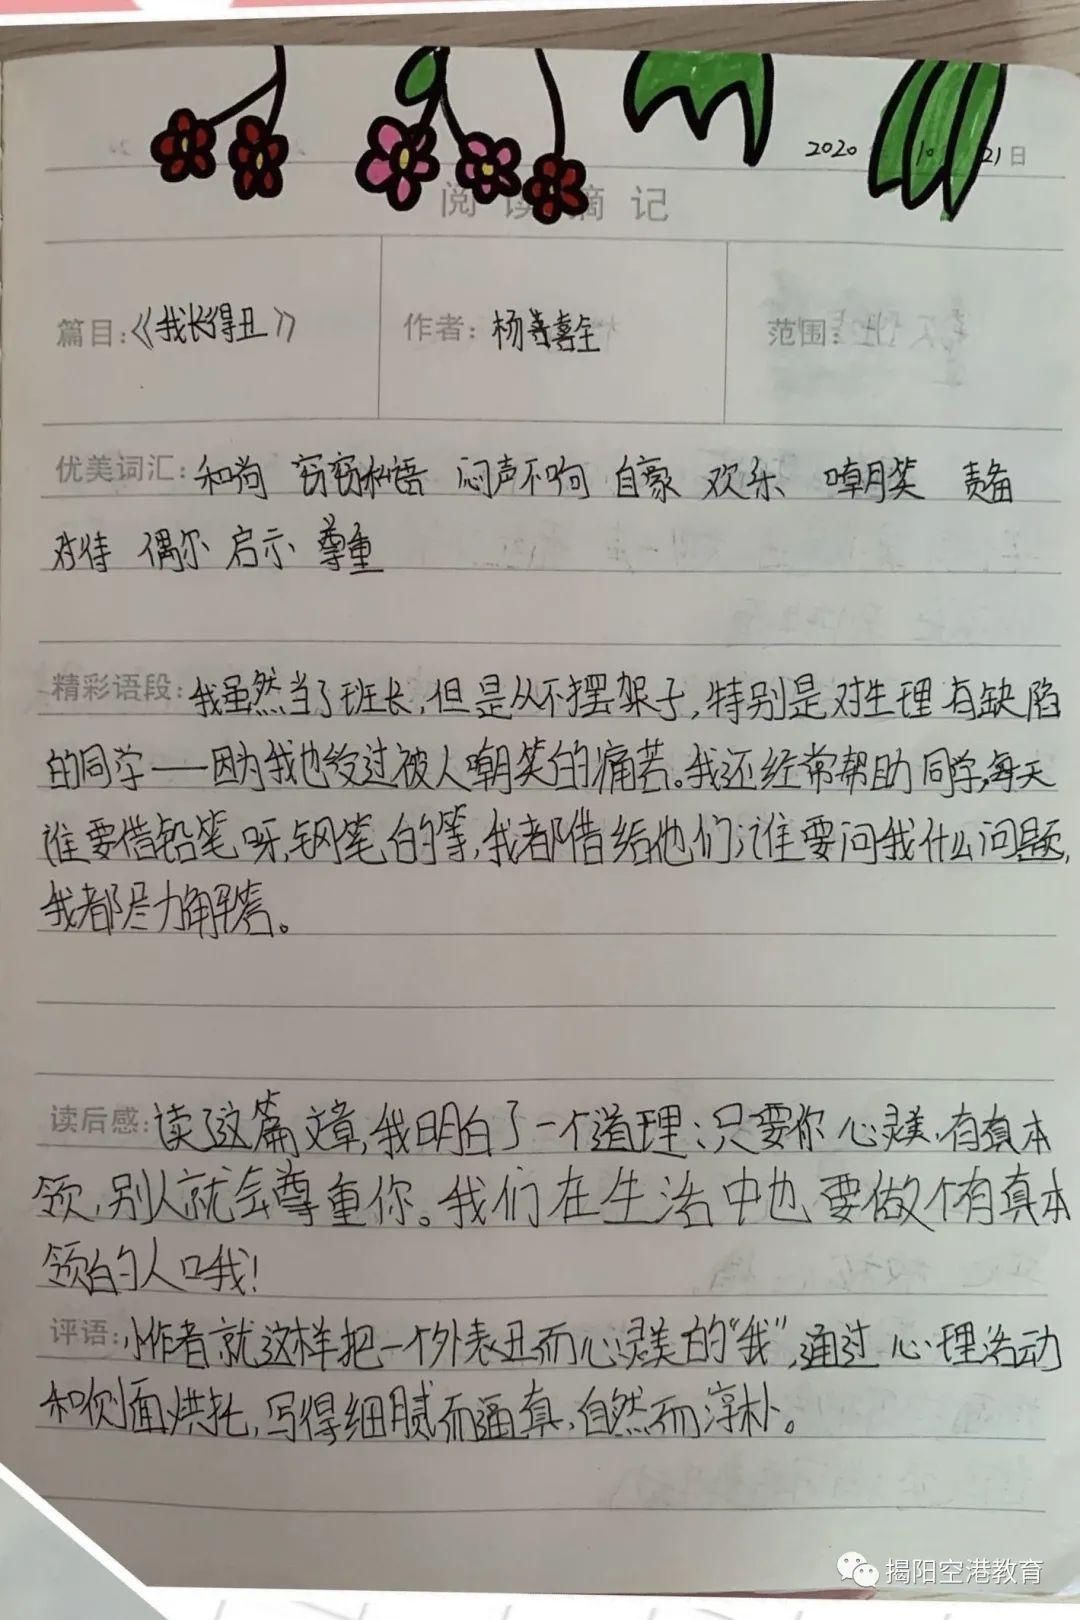 2020 10 21日
阅读摘记
篇目:《我长得丑》 作者: 杨喜 范围:
优美词汇: 和尚 窃窃私语 闷声不响 自豪 欢乐 嘲笑 责备
对待 偶尔 启示 尊重
精彩语段: 我虽然当了班长,但是从不摆架子,特别是对生理有缺陷
的同学——因为我也受过被人嘲笑的痛苦。我还经常帮助同学,每天
谁要借铅笔呀,钢笔的等,我都借给他们;谁要问我什么问题,
我都尽力解答。
读后感: 读了这篇文章,我明白了一个道理:只要你心灵美,有真本
领,别人就会尊重你。我们在生活中也要做个有真本
领的人哦!
评语: 小作者就这样把一个外表丑而心灵美的“我”,通过心理活动
和侧面烘托,写得细腻而逼真,自然而淳朴。
揭阳空港教育